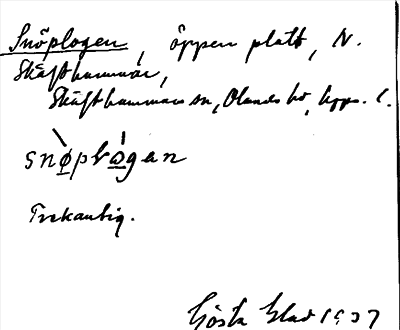 Snöplogen, öppen platt, N.
Skäfthammar,
Skäfthammars sn, Olands hd, Upps. l.
snø̀plɷ́gan
Trekantig.
Gösta Elad 1937